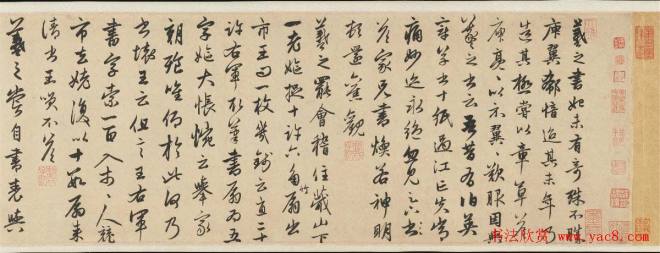 羲之書初未有奇殊不勝
庾翼郗愔迨其末年乃
造其極嘗以章草答
庾亮亮以示翼翼歎服因與
羲之書云吾昔有伯英
章草書十紙過江亡失常
痛妙迹永絕忽見足下
答家兄書煥若神明
頓還舊觀
羲之罷會稽住蕺山下
一老嫗捉十許六角竹扇出
市王問一枚幾錢云直二十
許右軍取筆書扇扇為五
字嫗大悵惋云舉家
朝飧惟仰於此何乃
書壞王云但言王右軍
書字索一百入市市人競
市去姥復以十數扇來
請書王笑不答
羲之嘗自書表與
书法欣赏
www.yac8.com